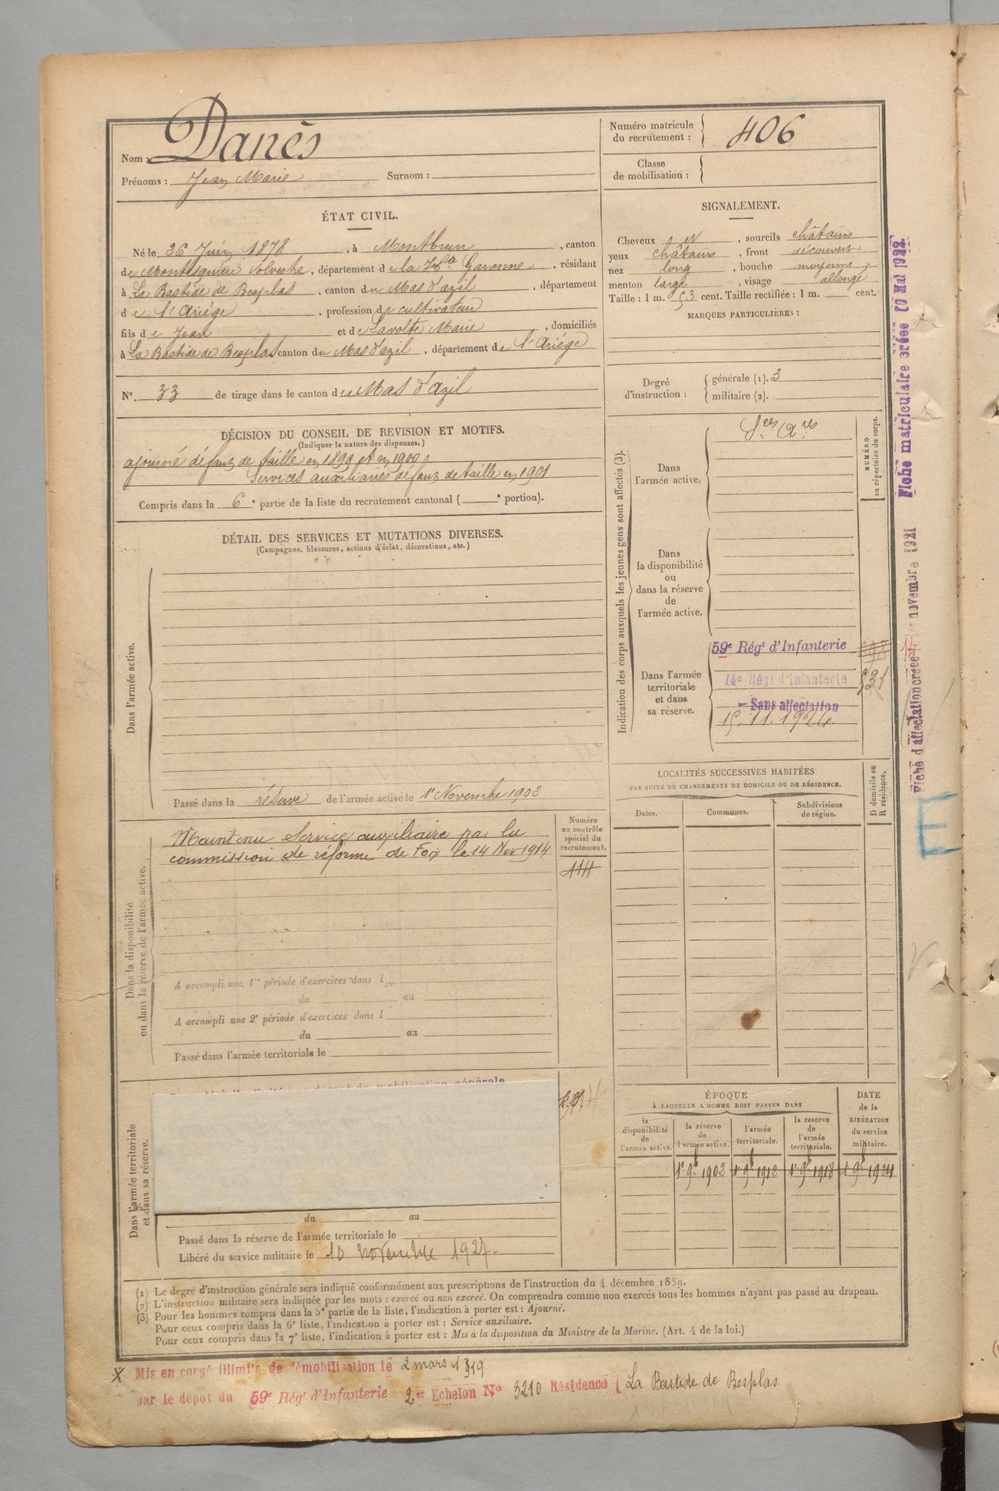 Nom : Danès
Prénoms : Jean Marie Surnom :
Numéro matricule
du recrutement : 406
Classe
de mobilisation :
ÉTAT CIVIL.
Né le 26 Juin 1878, à Montbrun, canton
de Montesquieu Volvestre, département de la Hte Garonne, résidant
à La Bastide de Besplas, canton du Mas d'azil, département
de l'Ariége, profession de cultivateur
fils de Jean et de Lavolte Marie, domiciliés
à La Bastide de Besplas canton du Mas d'azil, département de l'Ariége
N°. 33 de tirage dans le canton de Mas d'Azil
SIGNALEMENT.
Cheveux et, sourcils châtains
yeux châtains, front découvert
nez long, bouche moyenne
menton large, visage allongé
Taille : 1 m. 53 cent. Taille rectifiée : 1 m. cent.
MARQUES PARTICULIÈRES :
Degré
d'instruction :
générale (1). 3
militaire (2).
DÉCISION DU CONSEIL DE REVISION ET MOTIFS.
(Indiquer la nature des dispenses.)
ajourné défaut de taille en 1899 et en 1900,
Services auxiliaires défaut de taille en 1901
Compris dans la 6e partie de la liste du recrutement cantonal ( e portion).
DÉTAIL DES SERVICES ET MUTATIONS DIVERSES.
(Campagnes, blessures, actions d'éclat, décorations, etc.)
Dans l'armée active.
Passé dans la réserve de l'armée active le 1er Novembre 1902
Dans la disponibilité
ou dans la réserve de l'armée active.
Maintenu Service auxiliaire par la
commission de réforme de Foix le 14 Nov 1914
Numéro
au contrôle
spécial du
recrutement.
A accompli une 1re période d'exercices dans l
du au
A accompli une 2e période d'exercices dans l
du au
Passé dans l'armée territoriale le
Dans l'armée territoriale
et dans sa réserve.
du au
Passé dans la réserve de l'armée territoriale le
Libéré du service militaire le 10 novembre 1927.
Indication des corps auxquels les jeunes gens sont affectés (3).
NUMÉRO
au répertoire du corps.
Dans
l'armée active.
Sces Ares
Dans
la disponibilité
ou
dans la réserve
de
l'armée active.
Dans l'armée
territoriale
et dans
sa réserve.
59e Régt d'Infanterie
14e Régt d'Infanterie
Sans affectation
15.11.1926
LOCALITÉS SUCCESSIVES HABITÉES
PAR SUITE DE CHANGEMENTS DE DOMICILE OU DE RÉSIDENCE.
Dates. Communes. Subdivisions
de région.
D domicile ou
R résidence.
ÉPOQUE
À LAQUELLE L'HOMME DOIT PASSER DANS
la
disponibilité
de
l'armée active.
la réserve
de
l'armée active.
l'armée
territoriale.
la réserve
de
l'armée
territoriale.
DATE
de la
LIBÉRATION
du service
militaire.
1er 9bre 1902 1er 9bre 1912 1er 9bre 1918 1er 9bre 1924
(1) Le degré d'instruction générale sera indiqué conformément aux prescriptions de l'instruction du 4 décembre 1889.
(2) L'instruction militaire sera indiquée par les mots : exercé ou non exercé. On comprendra comme non exercés tous les hommes n'ayant pas passé au drapeau.
(3) Pour les hommes compris dans la 5e partie de la liste, l'indication à porter est : Ajourné.
Pour ceux compris dans la 6e liste, l'indication à porter est : Service auxiliaire.
Pour ceux compris dans la 7e liste, l'indication à porter est : Mis à la disposition du Ministre de la Marine. (Art. 4 de la loi.)
Mis en congé illimité de démobilisation le 2 mars 1919
par le dépôt du 59e Régt d'Infanterie 2er Echelon N° 3210 Résidence La Bastide de Besplas
Fiche matriculaire créée 10 Mai 1922
Fiche d'affectation créée novembre 1921
E